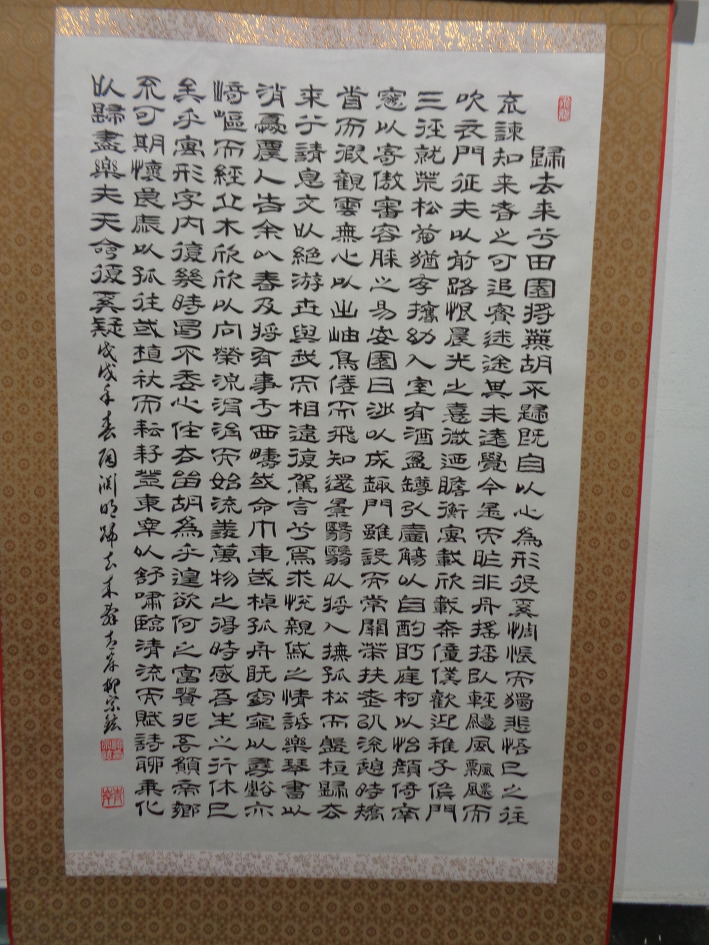 歸去來兮田園將蕪胡不歸既自以心為形役奚惆悵而獨悲悟已之往
不諫知來者之可追實迷途其未遠覺今是而昨非舟搖搖以輕颺風飄飄而
吹衣問征夫以前路恨晨光之熹微迺瞻衡宇載欣載奔僮僕歡迎稚子候門
三徑就荒松菊猶存攜幼入室有酒盈罇引壺觴以自酌眄庭柯以怡顏倚南
窗以寄傲審容膝之易安園日涉以成趣門雖設而常關策扶老以流憩時矯
首而遐觀雲無心以出岫鳥倦而飛知還景翳翳以將入撫孤松而盤桓歸去
來兮請息交以絕游世與我而相違復駕言兮焉求悅親戚之情話樂琴書以
消憂農人告余以春及將有事于西疇或命巾車或棹孤舟既窈窕以尋壑亦
崎嶇而經丘木欣欣以向榮流涓涓而始流羨萬物之得時感吾生之行休已
矣乎寓形宇內復幾時曷不委心任去留胡為乎遑欲何之富貴非吾願帝鄉
不可期懷良辰以孤往或植杖而耘耔登東皋以舒嘯臨清流而賦詩聊乘化
以歸盡樂夫天命復奚疑戊戌年春陶淵明歸去來辭